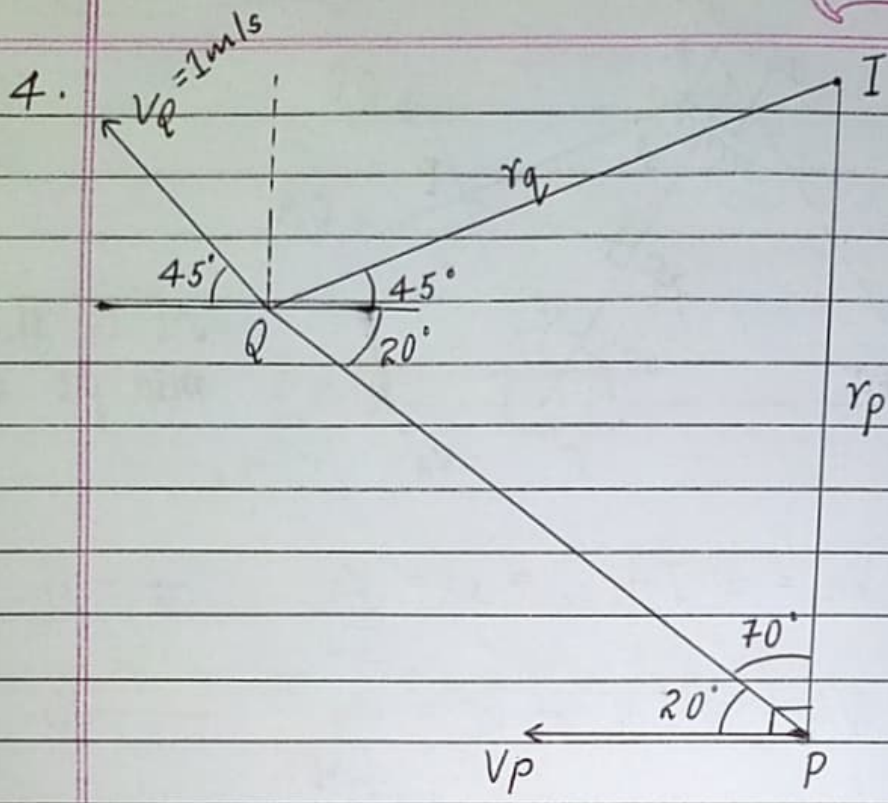 4.
V_Q = 1m/s
I
r_q
45°
45°
Q
20°
r_P
70°
20°
V_P
P